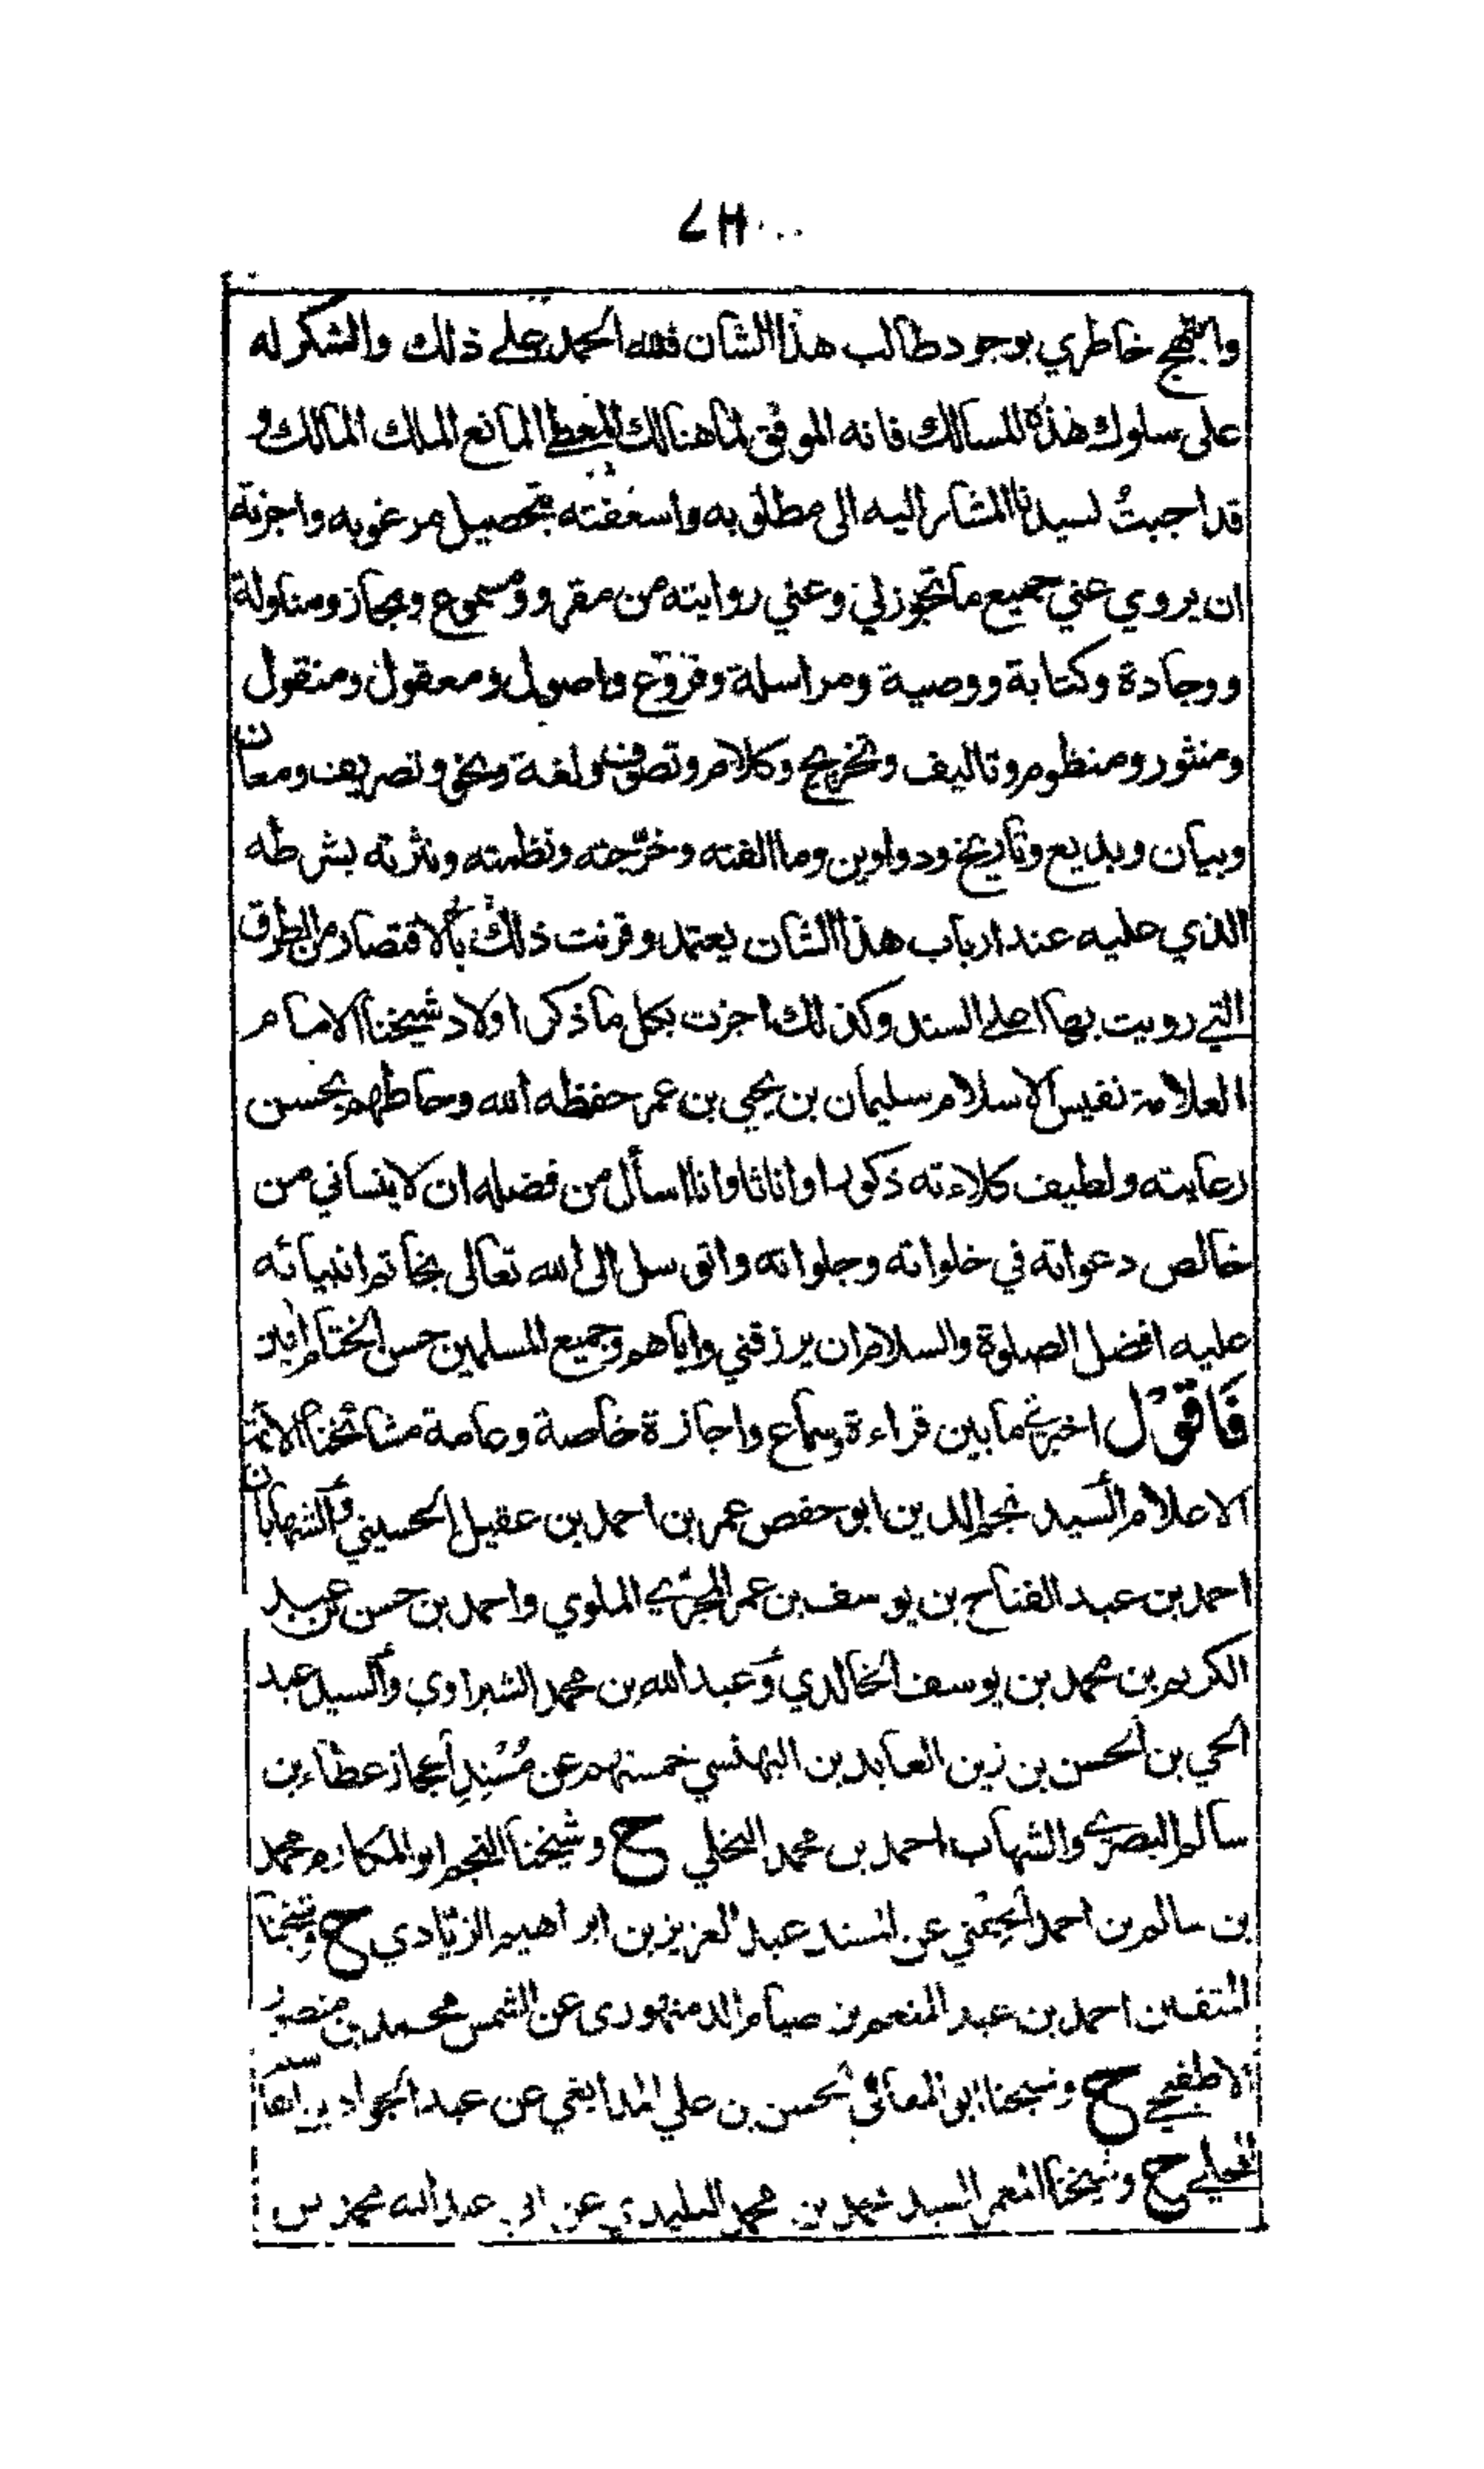 وابتهج خاطري بوجود طالب هذا الشان فلله الحمد على ذلك والشكر له
على سلوك هذه المسالك فانه الموفق لما هنالك المعطي المانع الملك المالك و
قد اجبتُ لسيدنا المشار اليه الى مطلوبه واسعفته بتحصيل مرغوبه واجزته
ان يروي عني جميع ما تجوز لي وعني روايته من مقرو ومسموع ومجاز ومناولة
ووجادة وكتابة ووصية ومراسلة وفروع واصول ومعقول ومنقول
ومنثور ومنظوم وتاليف وتخريج وكلام وتصوف ولغة ونحو وتصريف ومعان
وبيان وبديع وتاريخ ودواوين وما الفته وخرّجته ونظمته ونثرته بشرطه
الذي عليه عند ارباب هذا الشان يعتمد وقرنت ذلك بالاقتصار من الطرق
التي رويت بها اعلى السند وكذلك اجزت بكل ما ذكر اولاد شيخنا الامام
العلامة نفيس الاسلام سليمان بن يحيى بن عمر حفظه الله وحاطهم بحسن
رعايته ولطيف كلاءته ذكورا واناثا وانا اسأل من فضله ان لا ينساني من
خالص دعواته في خلواته وجلواته واتوسل الى الله تعالى بخاتم انبيائه
عليه افضل الصلوة والسلام ان يرزقني واياهم وجميع المسلمين حسن الختام امين
فَاقُوْل اخبرنا ما بين قراءة وسماع واجازة خاصة وعامة مشائخنا الائمة
الاعلام السيد نجم الدين ابو حفص عمر بن احمد بن عقيل الحسيني والشهابان
احمد بن عبد الفتاح بن يوسف بن عمر المجيري الملوي واحمد بن حسن بن عبد
الكريم بن محمد بن يوسف الخالدي وعبد الله بن محمد الشبراوي والسيد عبد
الحي بن الحسن بن زين العابدين البهنسي خمستهم عن مُسْنِدِ الحجاز عبد الله بن
سالم البصري والشهاب احمد بن محمد النخلي ح وشيخنا النجم ابو المكارم محمد
بن سالم بن احمد الحفني عن المسند عبد العزيز بن ابراهيم الزيادي ح وشيخنا
المتفنن احمد بن عبد المنعم بن صيام الدمنهورى عن الشمس محمد بن منصور
الاطفيحي ح وشيخنا ابو المعالي الحسن بن علي المدابغي عن عبد الجواد بن القاسم
المحلي ح وشيخنا المعمر السيد محمد بن محمد البليدي عن ابي عبد الله محمد بن